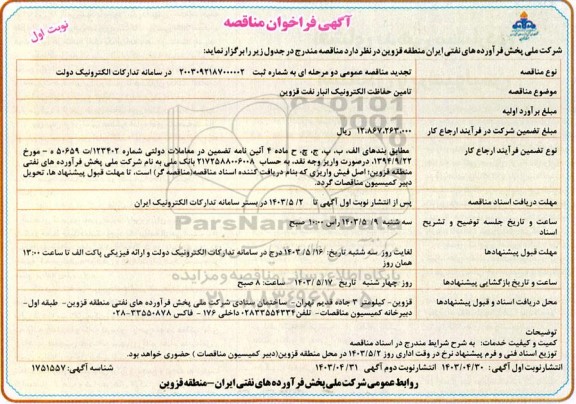 آگهی فراخوان مناقصه
نوبت اول
شرکت ملی پخش فرآورده های نفتی ایران منطقه قزوین در نظر دارد مناقصه مندرج در جدول زیر را برگزار نماید:
نوع مناقصه
تجدید مناقصه عمومی دو مرحله ای به شماره ثبت ۲۰۰۳۰۹۲۱۸۷۰۰۰۰۰۲ در سامانه تدارکات الکترونیک دولت
موضوع مناقصه
تامین حفاظت الکترونیک انبار نفت قزوین
مبلغ برآورد اولیه
مبلغ تضمین شرکت در فرآیند ارجاع کار
۱۲،۸۶۷،۲۶۳،۰۰۰ ریال
نوع تضمین فرآیند ارجاع کار
مطابق بندهای الف، ب، پ، ج، چ، ح ماده ۴ آئین نامه تضمین در معاملات دولتی شماره ۱۲۳۴۰۲/ت ۵۰۶۵۹ ه - مورخ
۱۳۹۴/۹/۲۲. درصورت واریز وجه نقد، به حساب ۲۱۷۲۵۸۸۰۰۶۰۰۸ بانک ملی به نام شرکت ملی پخش فرآورده های نفتی
منطقه قزوین؛ اصل فیش واریزی که بنام دریافت کننده اسناد مناقصه(مناقصه گر) است، تا مهلت قبول پیشنهاد ها، تحویل
دبیر کمیسیون مناقصات گردد.
مهلت دریافت اسناد مناقصه
پس از انتشار نوبت اول آگهی تا ۱۴۰۳/۵/۲ در بستر سامانه تدارکات الکترونیک ایران
ساعت و تاریخ جلسه توضیح و تشریح اسناد
سه شنبه ۱۴۰۳/۵/۹ راس ۱۰:۰۰ صبح
مهلت قبول پیشنهادها
لغایت روز سه شنبه تاریخ ۱۴۰۳/۵/۱۶ درج در سامانه تدارکات الکترونیک دولت و ارائه فیزیکی پاکت الف تا ساعت ۱۳:۰۰
همان روز
ساعت و تاریخ بازگشایی پیشنهادها
روز چهار شنبه تاریخ ۱۴۰۳/۵/۱۷ ساعت: ۸ صبح
محل دریافت اسناد و قبول پیشنهادها
قزوین- کیلومتر ۳ جاده قدیم تهران - ساختمان ستادی شرکت ملی پخش فرآورده های نفتی منطقه قزوین- طبقه اول-
دبیرخانه کمیسیون مناقصات- تلفن ۰۲۸۳۳۵۵۴۳۳۴ داخلی ۱۷۶ - فاکس ۳۳۵۵۰۸۷۸-۰۲۸
توضیحات
کمیت و کیفیت خدمات: به شرح شرایط مندرج در اسناد مناقصه
توزیع اسناد فنی و فرم پیشنهاد نرخ در وقت اداری روز ۱۴۰۳/۵/۲ در محل منطقه قزوین(دبیر کمیسیون مناقصات ) حضوری خواهد بود.
انتشار نوبت اول آگهی: ۱۴۰۳/۰۴/۳۰ انتشار نوبت دوم آگهی ۱۴۰۳/۰۴/۳۱
شناسه آگهی: ۱۷۵۱۵۵۷
روابط عمومی شرکت ملی پخش فرآورده های نفتی ایران-منطقه قزوین